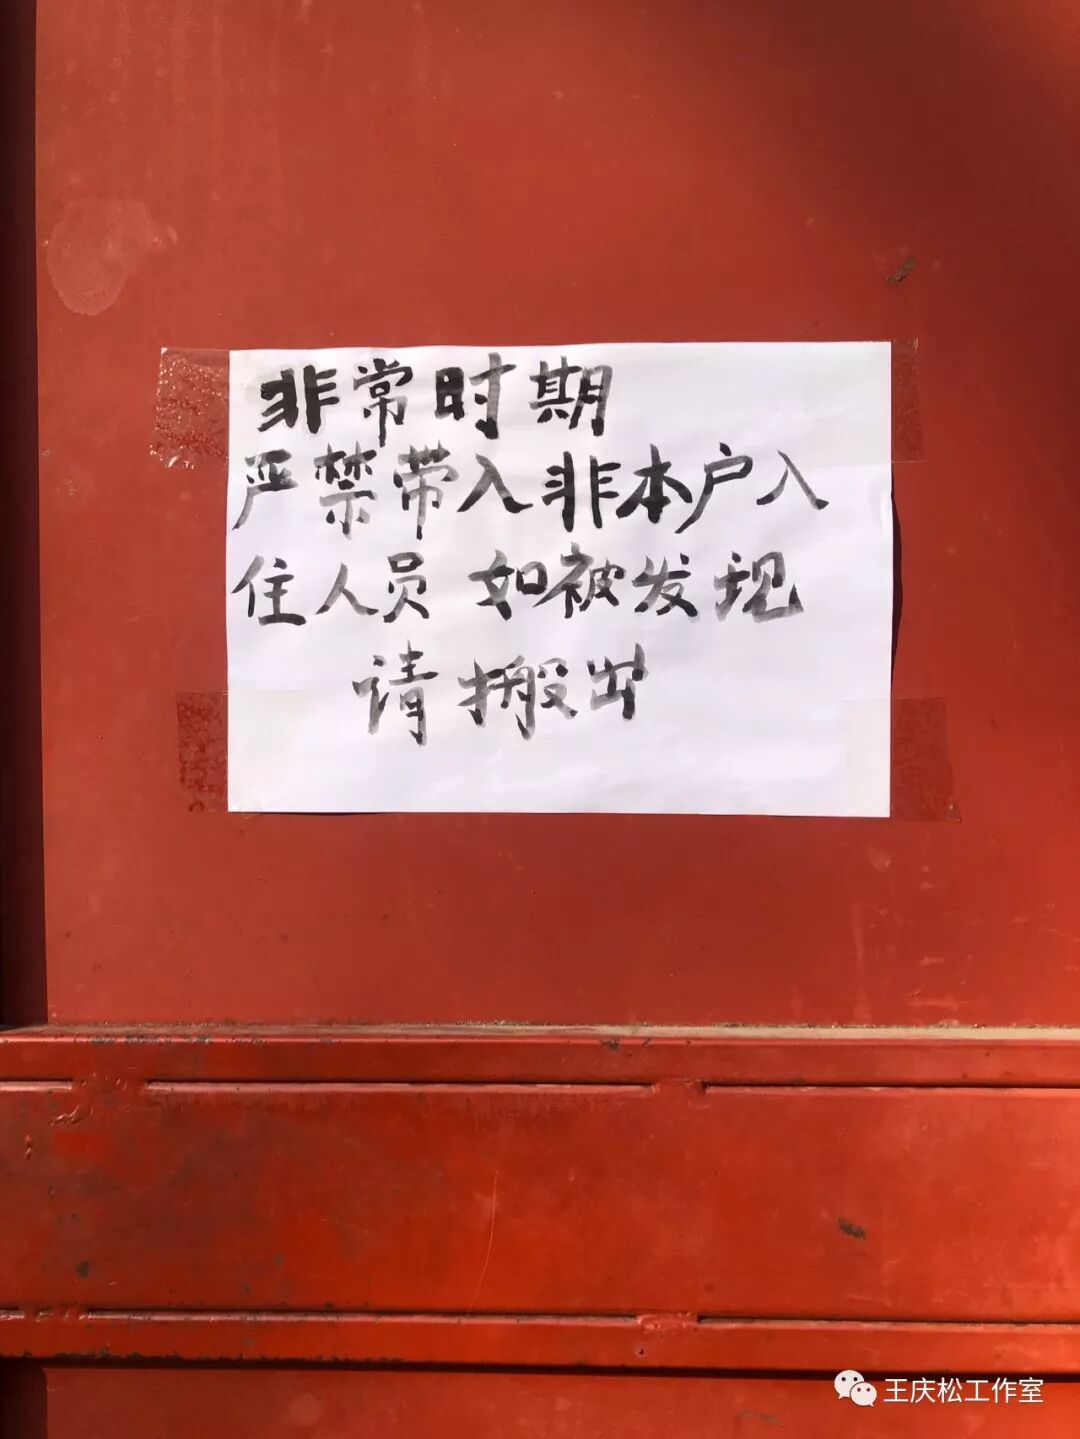 非常时期
严禁带入非本户入
住人员 如被发现
请搬出
王庆松工作室